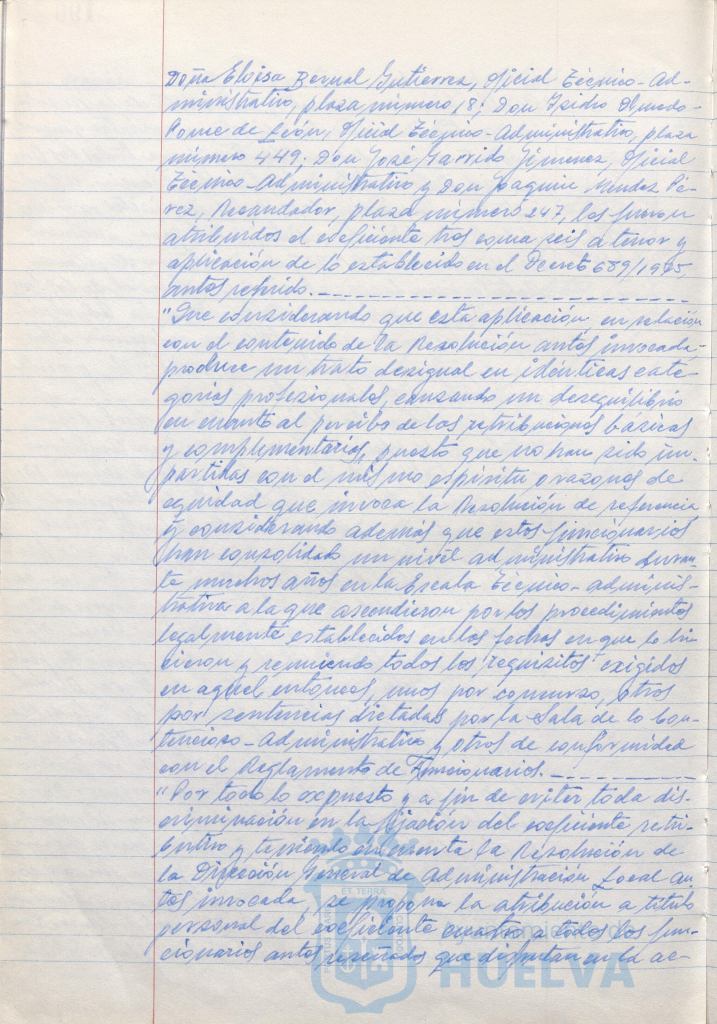 Doña Eloisa Bernal Gutierrez, Oficial Técnico-Ad-
ministrativo, plaza número 18; Don Isidro Olmedo-
Ponce de León, Oficial Técnico-Administrativo, plaza
número 449; Don José Garrido Gimenez, Oficial
Técnico-Administrativo y Don Joaquin Mendez Pé-
rez, Recaudador, plaza número 247, les fueron
atribuidos el coeficiente tres coma seis a tenor y
aplicación de lo establecido en el Decreto 689/1975,
antes referido.
"Que considerando que esta aplicación, en relación
con el contenido de la Resolución antes invocada-
produce un trato desigual en idénticas cate-
gorias profesionales, causando un desequilibrio
en cuanto al percibo de las retribuciones básicas
y complementarias, puesto que no han sido im-
partidas con el mismo espiritu y razones de
equidad que invoca la Resolución de referencia
y considerando además que estos funcionarios
han consolidado un nivel administrativo duran-
te muchos años en la Escala Técnico-adminis-
trativa a la que ascendieron por los procedimientos
legalmente establecidos en las fechas en que lo hi-
cieron y reuniendo todos los requisitos exigidos
en aquel entonces, unos por concurso, otros
por sentencias dictadas por la Sala de lo Con-
tencioso-Administrativo y otros de conformidad
con el Reglamento de Funcionarios.
"Por todo lo expuesto y a fin de evitar toda dis-
criminación en la fijación del coeficiente retri-
butivo y teniendo en cuenta la Resolución de
la Dirección General de Administración Local an-
tes invocada, se propone la atribución a titulo
personal del coeficiente cuatro a todos los fun-
cionarios antes reseñados que disfrutan en la ac-
ET TERRA
HUELVA